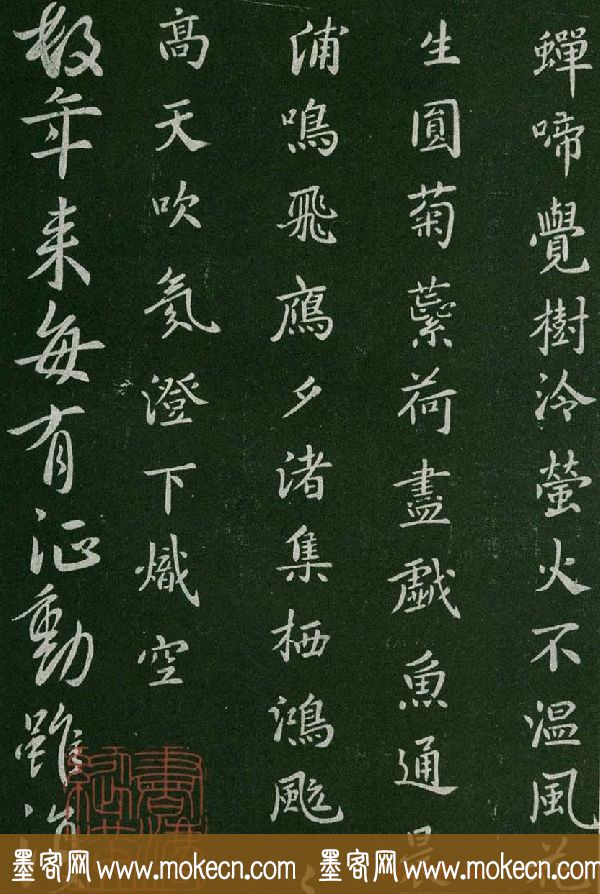 蟬啼覺樹冷螢火不温風花
生圓菊蘂荷盡戲魚通晨
浦鳴飛鴈夕渚集栖鴻颯
高天吹氛澄下熾空
数年来每有征動雖
墨客网 www.mokecn.com 墨客网 www.mokecn.com